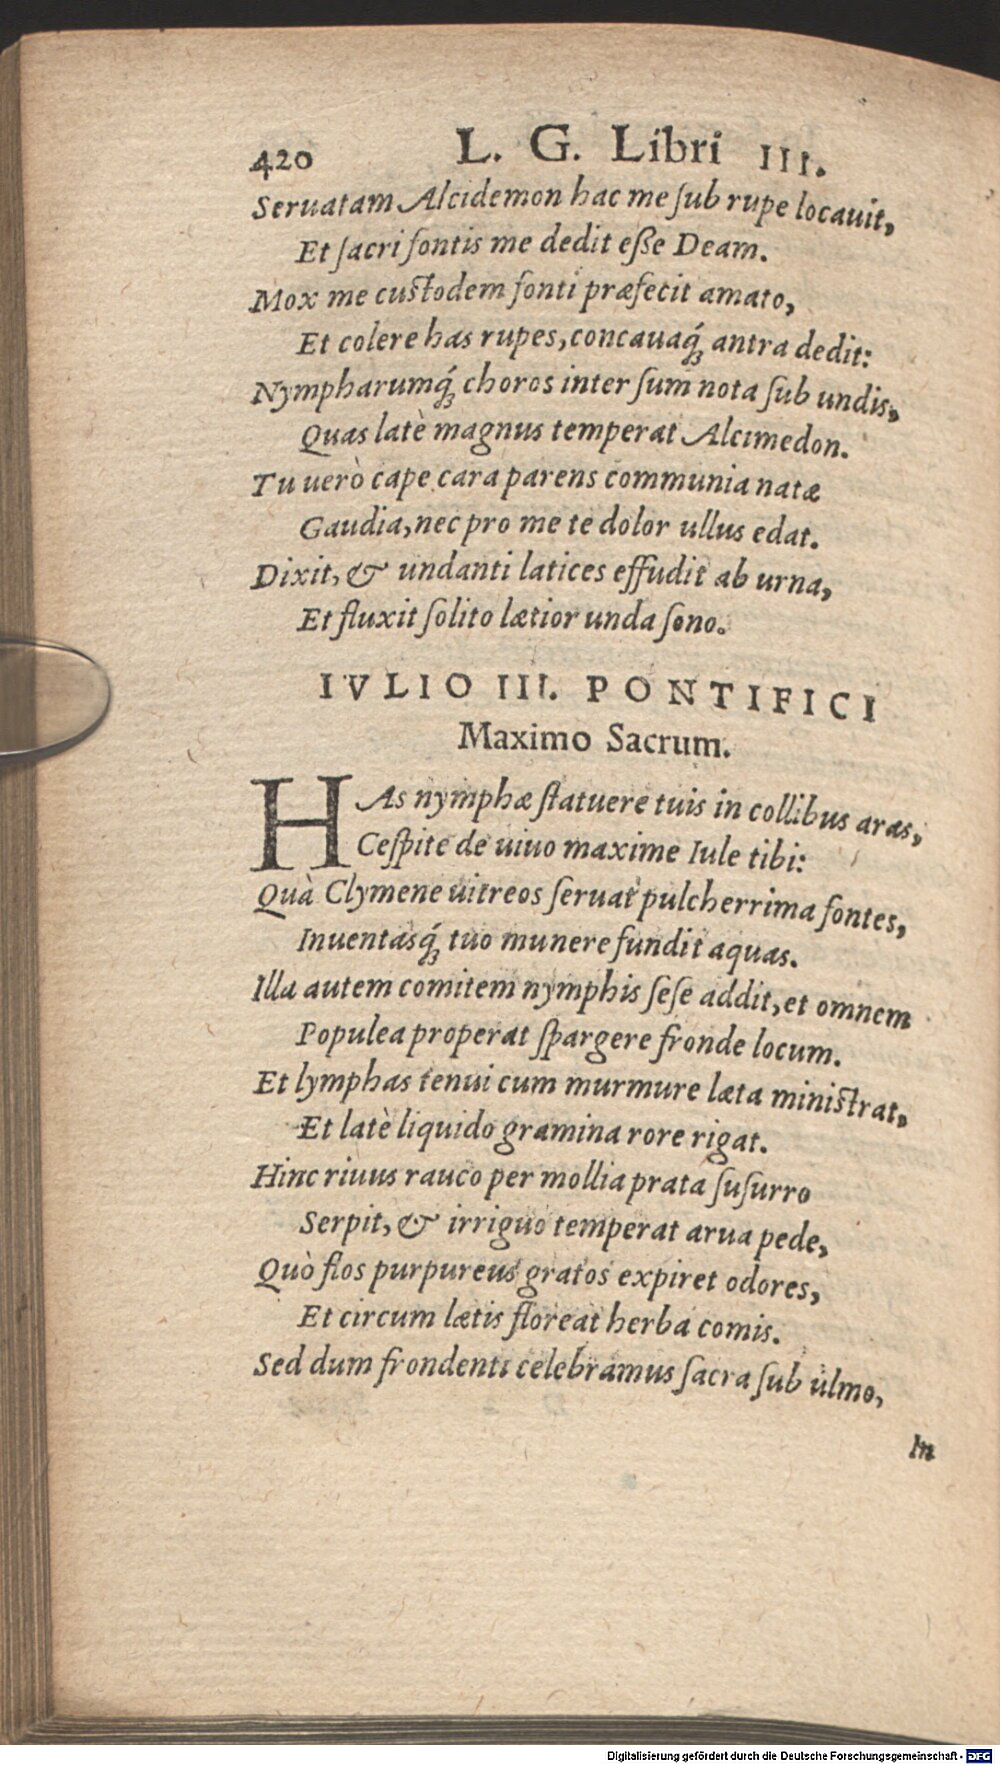 420 L. G. Libri III.
Seruatam Alcidemon hac me ſub rupe locauit,
Et ſacri fontis me dedit eſſe Deam.
Mox me cuſtodem fonti præfecit amato,
Et colere has rupes, concauaq́; antra dedit:
Nympharumq́; choros inter ſum nota ſub undis,
Quas latè magnus temperat Alcimedon.
Tu uerò cape cara parens communia natæ
Gaudia, nec pro me te dolor ullus edat.
Dixit, & undanti latices effudit ab urna,
Et fluxit ſolito lætior unda ſono.
IVLIO III. PONTIFICI
Maximo Sacrum.
HAs nymphæ ſtatuere tuis in collibus aras,
Ceſpite de uiuo maxime Iule tibi:
Quà Clymene uitreos ſeruat pulcherrima fontes,
Inuentasq́; tuo munere fundit aquas.
Illa autem comitem nymphis ſeſe addit, et omnem
Populea properat ſpargere fronde locum.
Et lymphas tenui cum murmure læta miniſtrat,
Et latè liquido gramina rore rigat.
Hinc riuus rauco per mollia prata ſuſurro
Serpit, & irriguo temperat arua pede,
Quò flos purpureus gratos expiret odores,
Et circum lætis floreat herba comis.
Sed dum frondenti celebramus ſacra ſub ulmo,
In
Digitalisierung gefördert durch die Deutsche Forschungsgemeinschaft - DFG